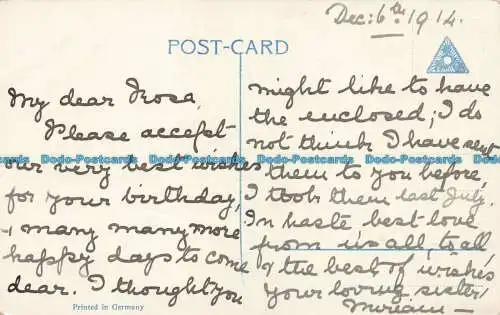 Dec: 6th 1914.
POST-CARD
My dear Rosa,
Please accept
our very best wishes
for your birthday,
& many many more
happy days to come
dear. I thought you
Printed in Germany
might like to have
the enclosed; I do
not think I have sent
them to you before,
I took them last July.
In haste best love
from us all, to all,
& the best of wishes
your loving sister
Miriam —
Dodo-Postcards Dodo-Postcards Dodo-Postcards Dodo-Postcards